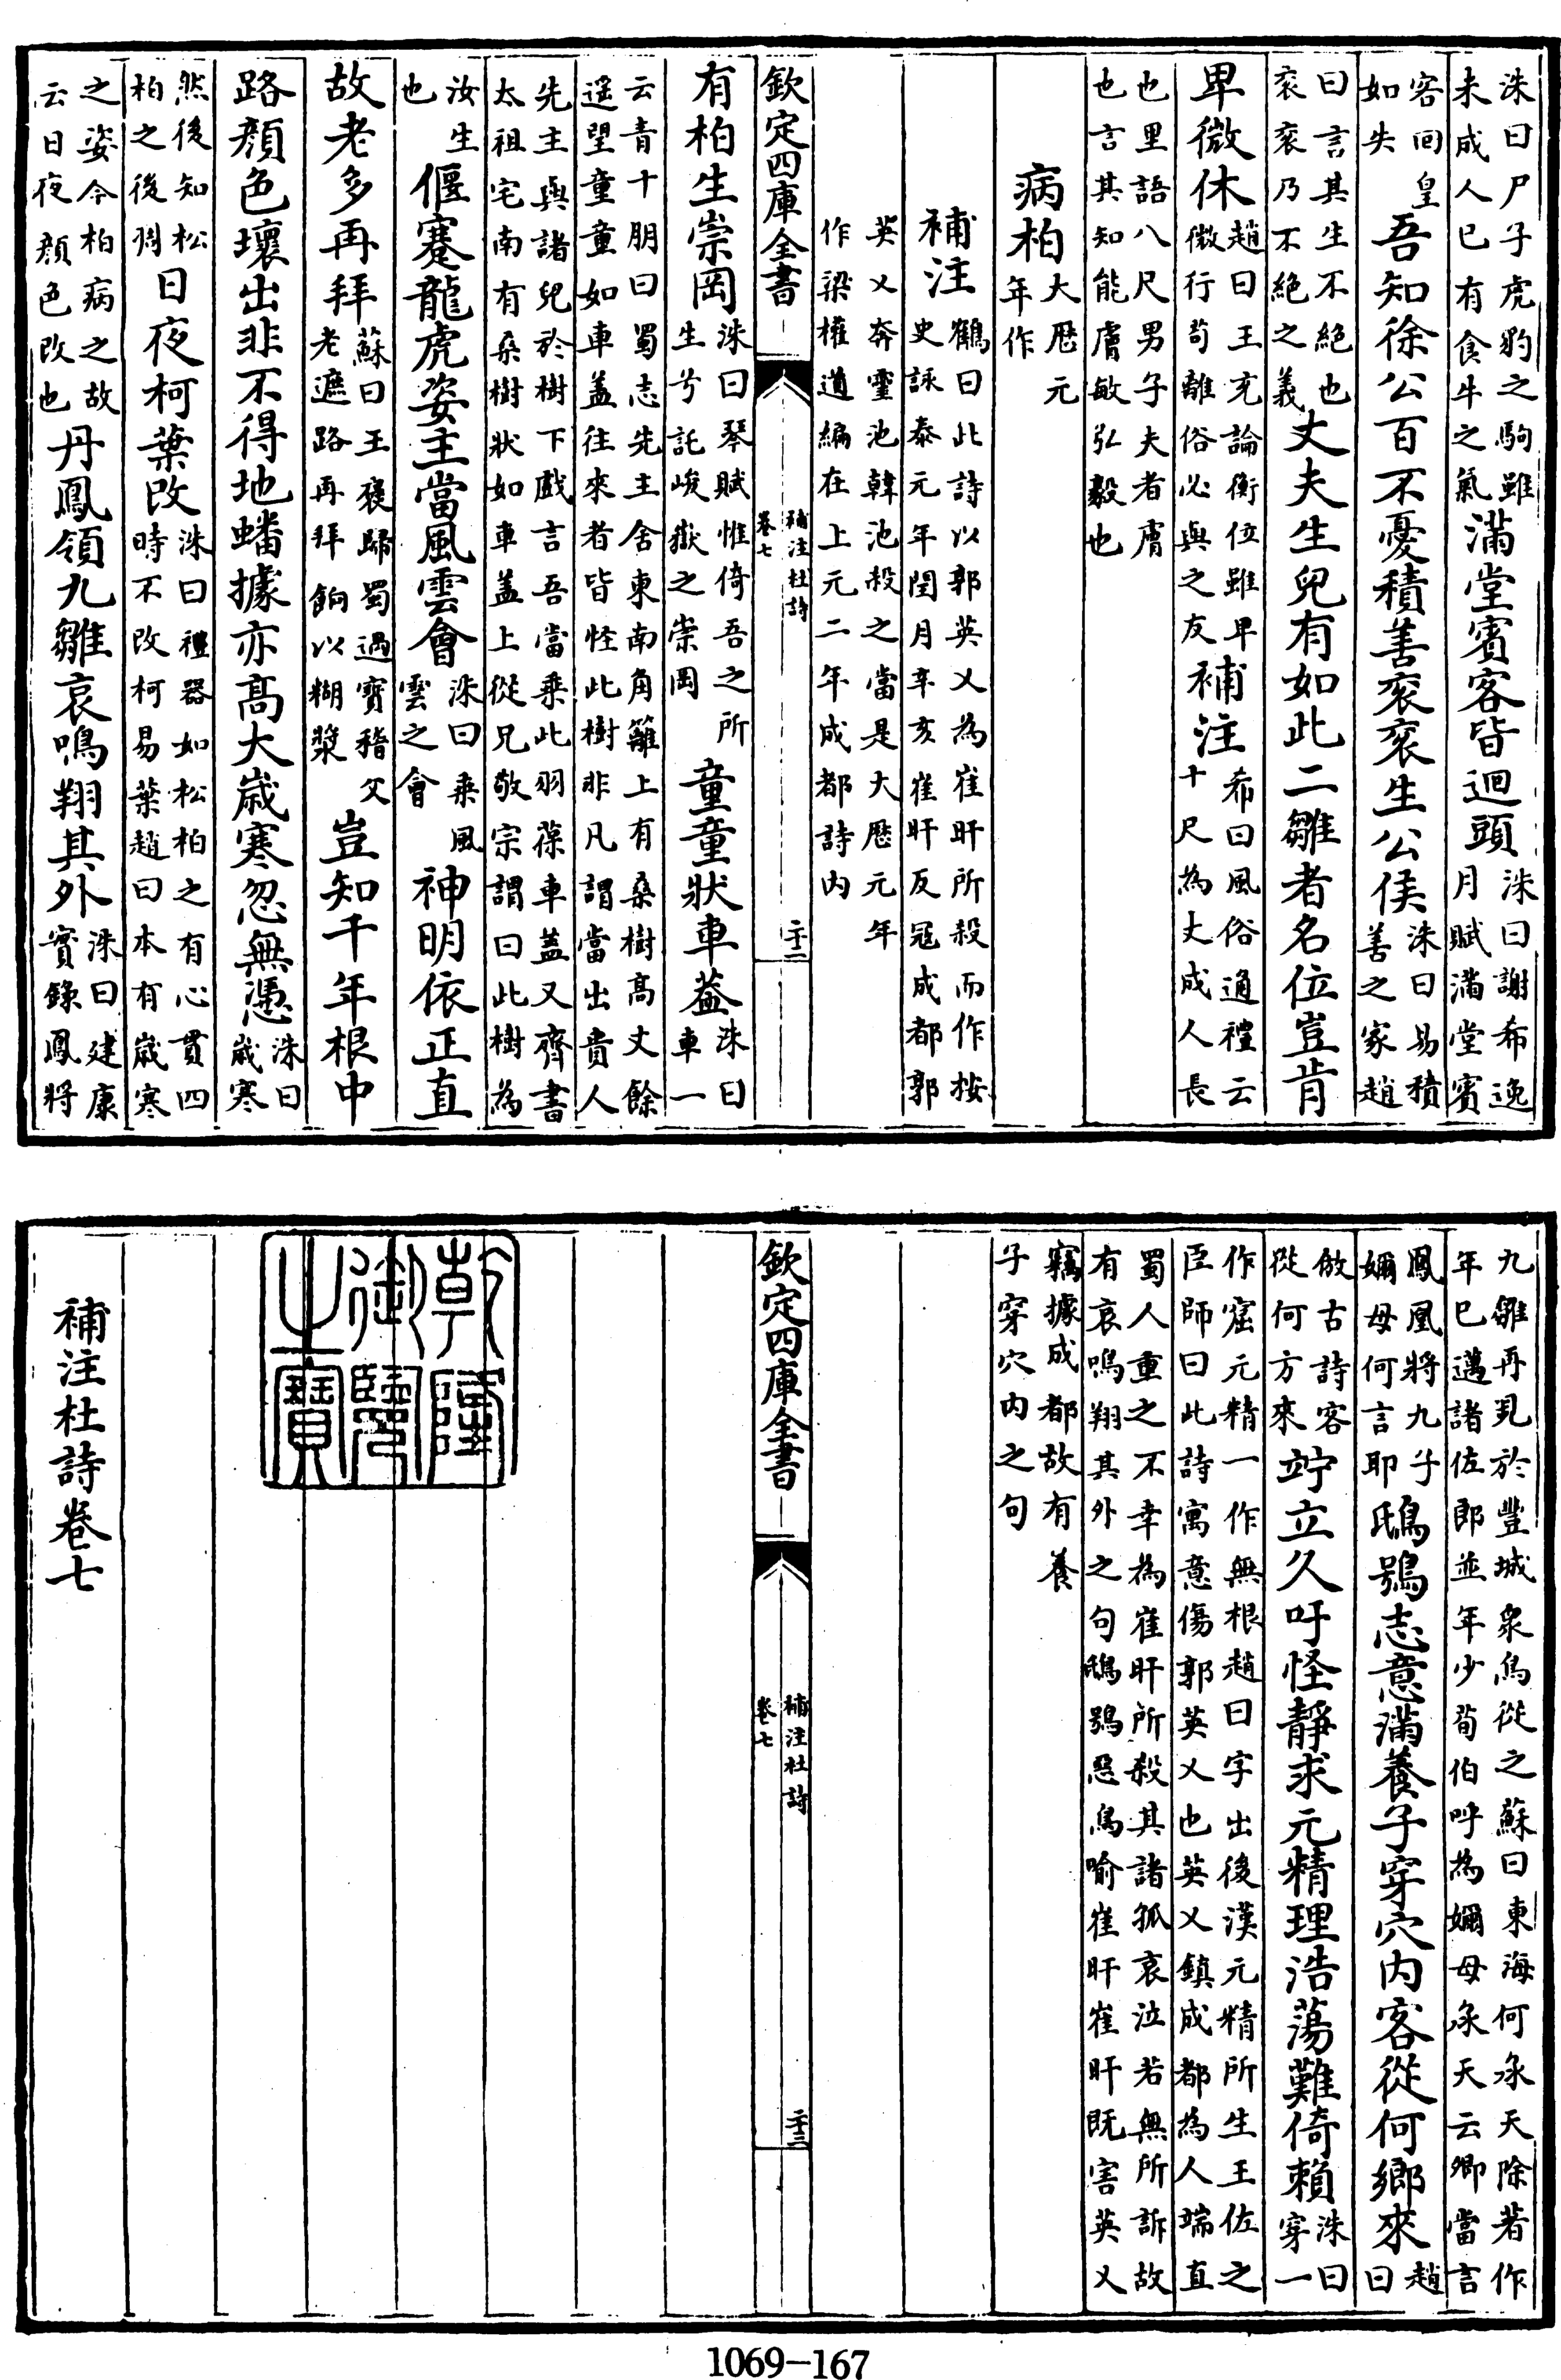 洙曰尸子虎豹之駒雖未成人已有食牛之氣滿堂賓客皆迴頭洙曰謝希逸月賦滿堂賓
客回皇如失吾知徐公百不憂積善衮衮生公侯洙曰易積善之家趙
曰言其生不絶也衮衮乃不絶之義丈夫生兒有如此二雛者名位豈肯
卑微休趙曰王充論衡位雖卑微行苟離俗必與之友補注希曰風俗通禮云十尺為丈成人長
也里語八尺男子夫者膚也言其知能膚敏弘毅也
病柏大厯元年作
補注鶴曰此詩以郭英乂為崔旰所殺而作按史詠泰元年閏月辛亥崔旰反冦成都郭
英乂奔靈池韓池殺之當是大厯元年作梁權道編在上元二年成都詩内
欽定四庫全書
補注杜詩
卷七
二十二
有柏生崇岡洙曰琴賦惟倚吾之所生兮託峻嶽之崇岡童童狀車葢洙曰車一
云青十朋曰蜀志先主舍東南角籬上有桑樹高丈餘遥望童童如車盖往來者皆怪此樹非凡謂當出貴人
先主與諸兒於樹下戲言吾當乘此羽葆車盖又齊書太祖宅南有桑樹狀如車盖上從兄敬宗謂曰此樹為
汝生也偃蹇龍虎姿主當風雲會洙曰乘風雲之會神明依正直
故老多再拜蘇曰王褒歸蜀遇寶稽父老遮路再拜餉以糊漿豈知千年根中
路顔色壞出非不得地蟠據亦高大歲寒忽無憑洙曰歲寒
然後知松柏之後凋日夜柯葉改洙曰禮器如松柏之有心貫四時不改柯易葉趙曰本有歲寒
之姿今柏病之故云日夜顔色改也丹鳳領九雛哀鳴翔其外洙曰建康實錄鳳將
九雛再見於豐城衆鳥從之蘇曰東海何承天除著作年巳邁諸佐郎並年少荀伯呼為嬭母承天云卿當言
鳳凰將九子嬭母何言耶鴟鴞志意滿養子穿穴内客從何鄉來趙曰
倣古詩客從何方來竚立久吁怪靜求元精理浩蕩難倚賴洙曰穿一
作窟元精一作無根趙曰字出後漢元精所生王佐之臣師曰此詩寓意傷郭英乂也英乂鎮成都為人端直
蜀人重之不幸為崔旰所殺其諸孤哀泣若無所訴故有哀鳴翔其外之句鴟鴞惡鳥喻崔旰崔旰既害英乂
竊據成都故有養子穿穴内之句
欽定四庫全書
補注杜詩
卷七
二十三
乾隆御覽之寶
補注杜詩卷七
1069-167